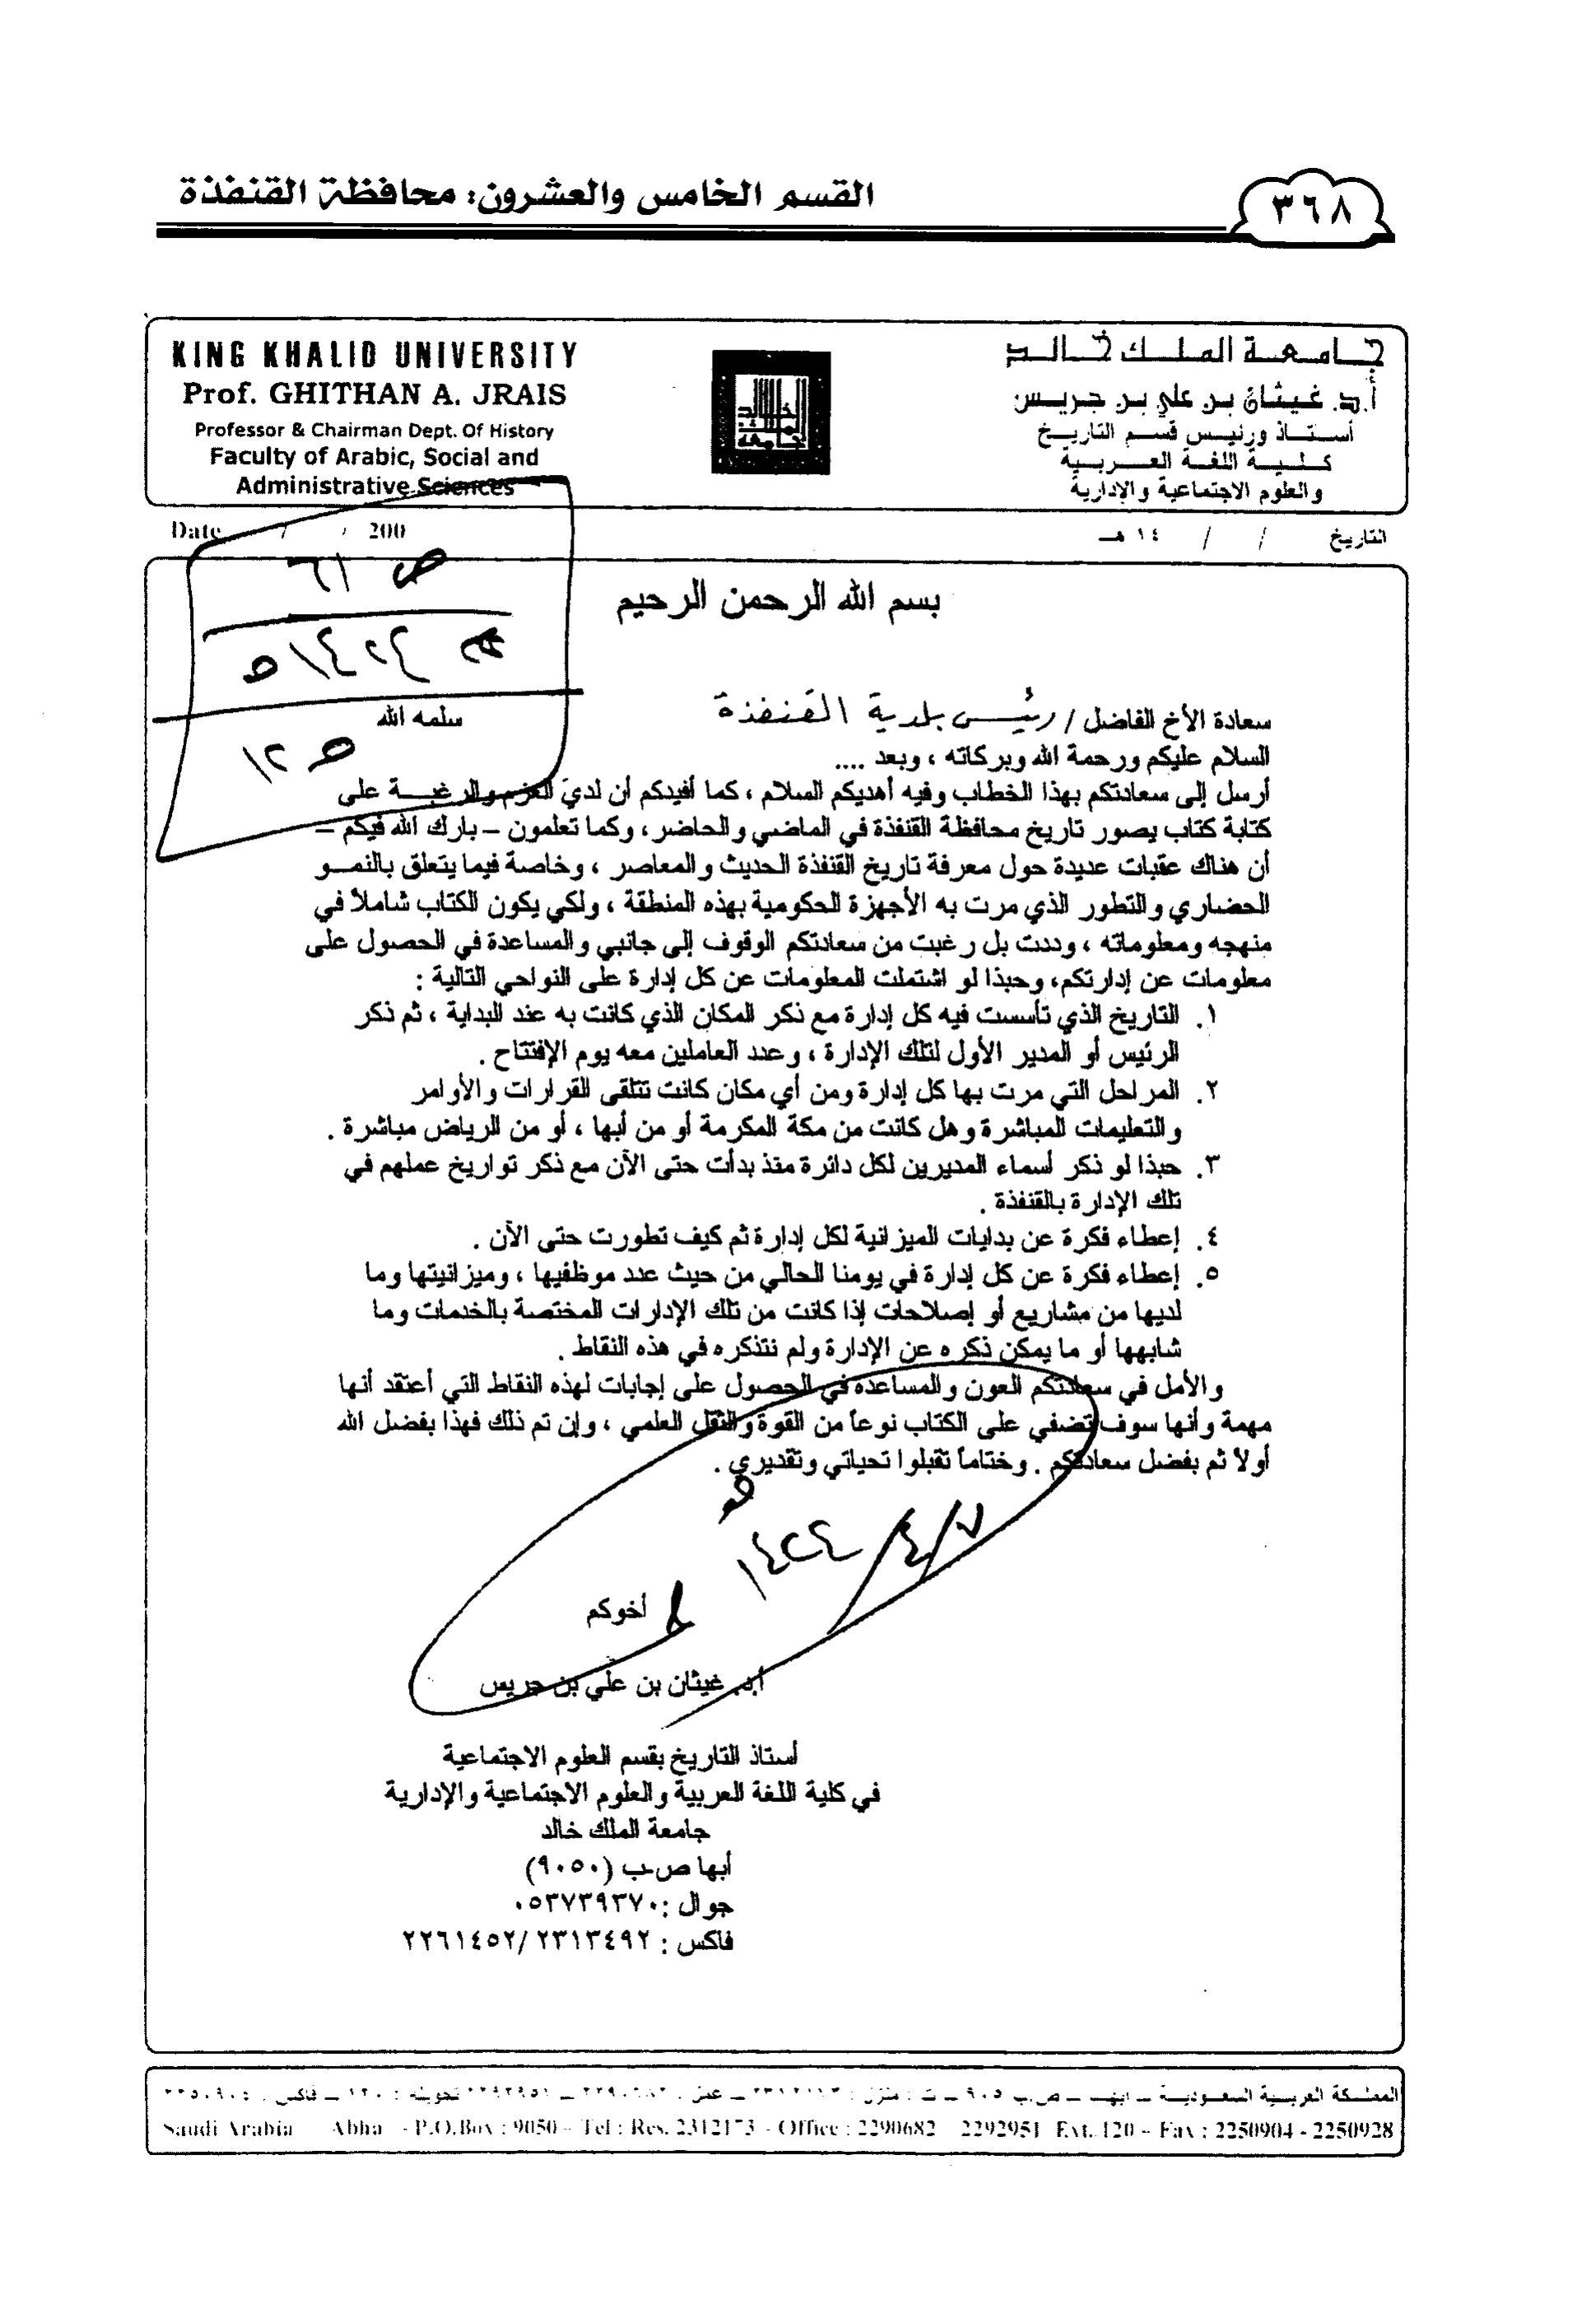 القسم الخامس والعشرون: محافظة القنفذة
٣٦٨
KING KHALID UNIVERSITY
Prof. GHITHAN A. JRAIS
Professor & Chairman Dept. Of History
Faculty of Arabic, Social and
Administrative Sciences
جامعة الملك خالد
أ.د. غيثان بن علي بن جريس
أستاذ ورئيس قسم التاريخ
كلية اللغة العربية
والعلوم الاجتماعية والإدارية
Date / / 200
التاريخ / / ١٤ هـ
بسم الله الرحمن الرحيم
سعادة الأخ الفاضل / رئيس بلدية القنفذة سلمه الله
السلام عليكم ورحمة الله وبركاته ، وبعد ....
أرسل إلى سعادتكم بهذا الخطاب وفيه أهديكم السلام ، كما أفيدكم أن لديَ العزم والرغبة على
كتابة كتاب يصور تاريخ محافظة القنفذة في الماضي والحاضر ، وكما تعلمون – بارك الله فيكم –
أن هناك عقبات عديدة حول معرفة تاريخ القنفذة الحديث والمعاصر ، وخاصة فيما يتعلق بالنمو
الحضاري والتطور الذي مرت به الأجهزة الحكومية بهذه المنطقة ، ولكي يكون الكتاب شاملاً في
منهجه ومعلوماته ، وددت بل رغبت من سعادتكم الوقوف إلى جانبي والمساعدة في الحصول على
معلومات عن إدارتكم، وحبذا لو اشتملت المعلومات عن كل إدارة على النواحي التالية :
١. التاريخ الذي تأسست فيه كل إدارة مع ذكر المكان الذي كانت به عند البداية ، ثم ذكر
الرئيس أو المدير الأول لتلك الإدارة ، وعدد العاملين معه يوم الإفتتاح .
٢. المراحل التي مرت بها كل إدارة ومن أي مكان كانت تتلقى القرارات والأوامر
والتعليمات المباشرة وهل كانت من مكة المكرمة أو من أبها ، أو من الرياض مباشرة .
٣. حبذا لو ذكر أسماء المديرين لكل دائرة منذ بدأت حتى الآن مع ذكر تواريخ عملهم في
تلك الإدارة بالقنفذة .
٤. إعطاء فكرة عن بدايات الميزانية لكل إدارة ثم كيف تطورت حتى الآن .
٥. إعطاء فكرة عن كل إدارة في يومنا الحالي من حيث عدد موظفيها ، وميزانيتها وما
لديها من مشاريع أو إصلاحات إذا كانت من تلك الإدارات المختصة بالخدمات وما
شابهها أو ما يمكن ذكره عن الإدارة ولم نتذكره في هذه النقاط .
والأمل في سعادتكم العون والمساعدة في الحصول على إجابات لهذه النقاط التي أعتقد أنها
مهمة وأنها سوف تضفي على الكتاب نوعاً من القوة والثقل العلمي ، وإن تم ذلك فهذا بفضل الله
أولا ثم بفضل سعادتكم . وختاماً تقبلوا تحياتي وتقديري .
٧/٤/١٤٢٤ هـ
أخوكم
أ.د. غيثان بن علي بن جريس
أستاذ التاريخ بقسم العلوم الاجتماعية
في كلية اللغة العربية والعلوم الاجتماعية والإدارية
جامعة الملك خالد
أبها ص.ب (٩٠٥٠)
جوال :٠٥٣٧٣٩٣٧٠
فاكس : ٢٢٦١٤٥٢/٢٣١٣٤٩٢
المملكة العربية السعودية – ابها – ص.ب
Saudi Arabia Abha - P.O.Box : 9050 – Tel : Res. 2312173 - Office : 2290682 2292951 Ext. 120 – Fax : 2250904 - 2250928